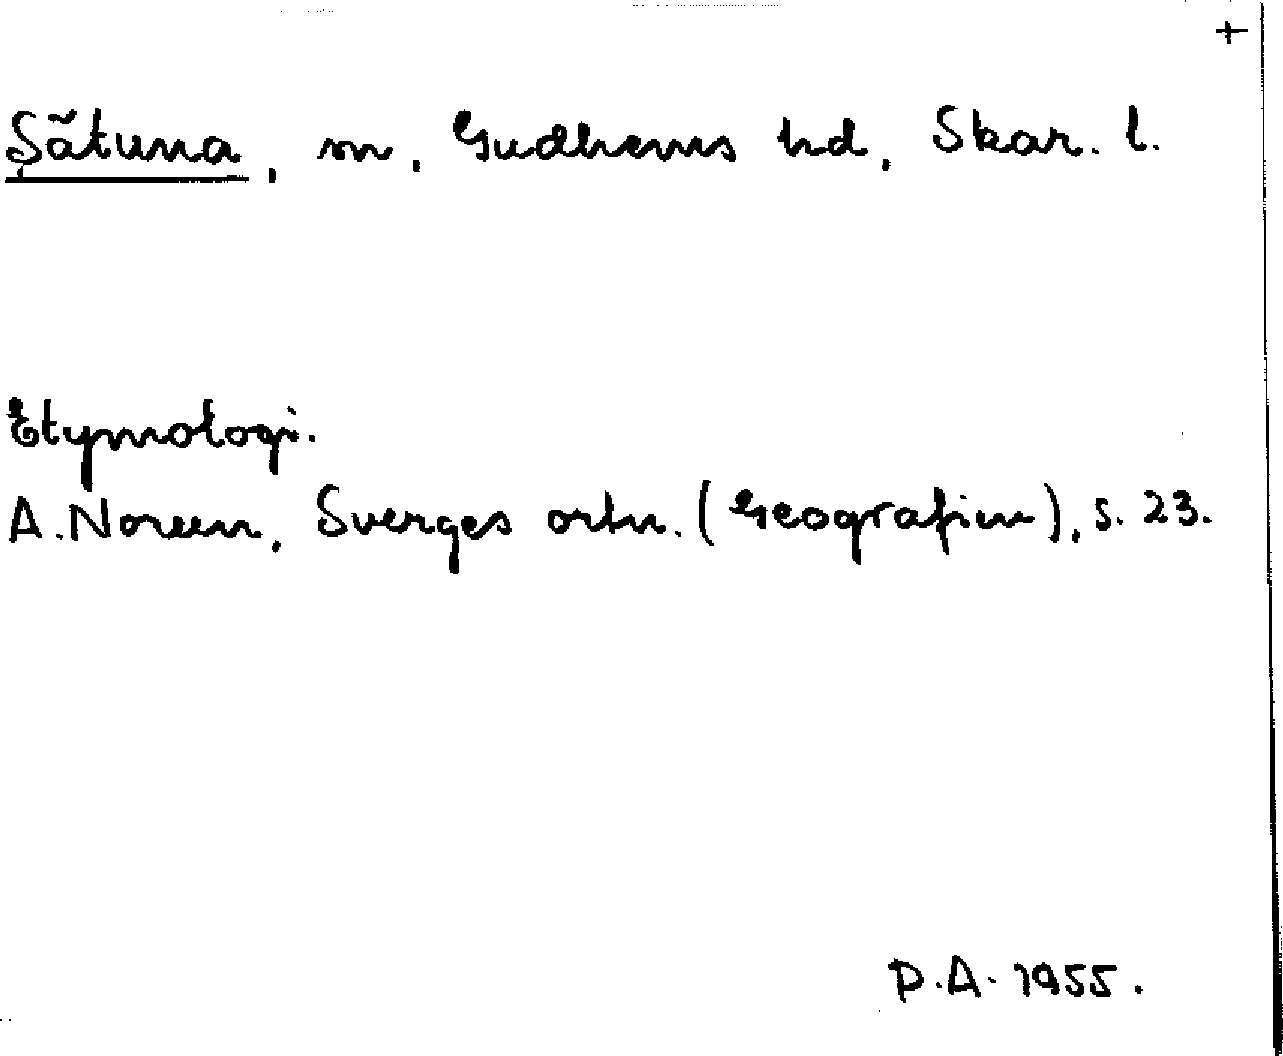 +
Sätuna, sn, Gudhems hd, Skar. l.
Etymologi.
A. Noreen, Sverges ortn. (Geografien), s. 23.
D.A. 1955.